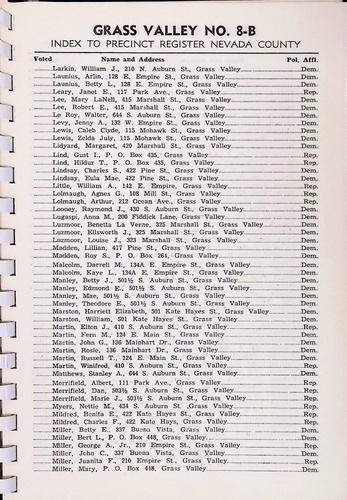 GRASS VALLEY NO. 8-B
INDEX TO PRECINCT REGISTER NEVADA COUNTY
Voted Name and Address Pol. Affl.
Larkin, William J., 210 N. Auburn St., Grass Valley Dem.
Launius, Arlin, 128 E. Empire St., Grass Valley Dem.
Launius, Betty L., 128 E. Empire St., Grass Valley Dem.
Leary, Janet E., 117 Park Ave., Grass Valley Rep.
Lee, Mary LaNell, 415 Marshall St., Grass Valley Dem.
Lee, Robert E., 415 Marshall St., Grass Valley Dem.
Le Roy, Walter, 644 S. Auburn St., Grass Valley Dem.
Levy, Jenny A., 132 W. Empire St., Grass Valley Dem.
Lewis, Caleb Clyde, 115 Mohawk St., Grass Valley Dem.
Lewis, Zelda July, 115 Mohawk St., Grass Valley Dem.
Lidyard, Margaret, 420 Marshall St., Grass Valley Dem.
Lind, Gust I., P. O. Box 435, Grass Valley Rep.
Lind, Hildur T., P. O. Box 435, Grass Valley Rep.
Lindsay, Charles S., 422 Pine St., Grass Valley Dem.
Lindsay, Eula Mae, 422 Pine St., Grass Valley Dem.
Little, William A., 142 E. Empire, Grass Valley Rep.
Lolmaugh, Agnes G., 108 Mill St., Grass Valley Rep.
Lolmaugh, Arthur, 212 Ocean Ave., Grass Valley Rep.
Looney, Raymond J., 430 S. Auburn St., Grass Valley Dem.
Lugaspi, Anna M., 200 Fiddick Lane, Grass Valley Dem.
Luzmoor, Benetta La Verne, 325 Marshall St., Grass Valley Dem.
Luzmoor, Ellsworth J., 325 Marshall St., Grass Valley Dem.
Luzmoor, Louise J., 323 Marshall St., Grass Valley Dem.
Madden, Lillian, 417 Pine St., Grass Valley Dem.
Madden, Roy S., P. O. Box 264, Grass Valley Dem.
Malcolm, Darrell M., 134A E. Empire St., Grass Valley Dem.
Malcolm, Kaye L., 134A E. Empire St., Grass Valley Dem.
Manley, Betty J., 501½ S. Auburn St., Grass Valley Dem.
Manley, Edmond E., 501½ S. Auburn St., Grass Valley Dem.
Manley, Mae, 501½ S. Auburn St., Grass Valley Dem.
Manley, Theodore E., 501½ S. Auburn St., Grass Valley Dem.
Marston, Harriett Elizabeth, 501 Kate Hayes St., Grass Valley Dem.
Marston, William, 501 Kate Hayes St., Grass Valley Dem.
Martin, Elton J., 410 S. Auburn St., Grass Valley Rep.
Martin, Fern M., 124 E. Main St., Grass Valley Dem.
Martin, John G., 136 Mainhart Dr., Grass Valley Dem.
Martin, Rosie, 136 Mainhart Dr., Grass Valley Dem.
Martin, Russell T., 124 E. Main St., Grass Valley Dem.
Martin, Winifred, 410 S. Auburn St., Grass Valley Rep.
Matthews, Stanley A., 644 S. Auburn St., Grass Valley Dem.
Merrifield, Albert, 111 Park Ave., Grass Valley Rep.
Merrifield, Dan, 503½ S. Auburn St., Grass Valley Rep.
Merrifield, Marie J., 503½ S. Auburn St., Grass Valley Rep.
Myers, Nettie M., 434 S. Auburn St., Grass Valley Rep.
Mildred, Bonita E., 422 Kate Hayes St., Grass Valley Rep.
Mildred, Charles F., 422 Kate Hays, Grass Valley Rep.
Miller, Betty E., 337 Buena Vista, Grass Valley Dem.
Miller, Bert L., P. O. Box 448, Grass Valley Dem.
Miller, George A., Jr., 210 Empire St., Grass Valley Rep.
Miller, John C., 337 Buena Vista, Grass Valley Dem.
Miller, Juanita F., 210 Empire St., Grass Valley Rep.
Miller, Mary, P. O. Box 448, Grass Valley Dem.